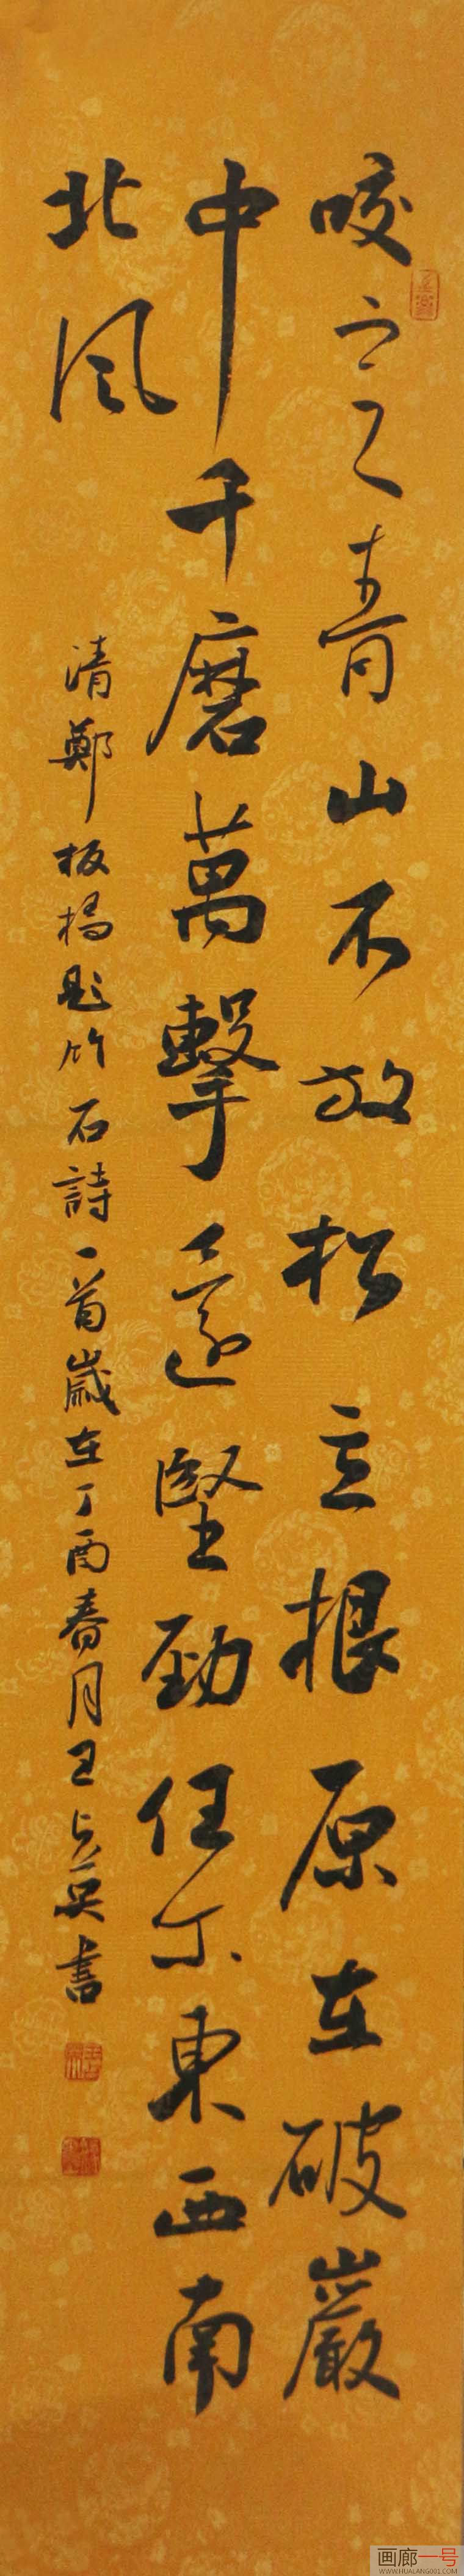 咬定青山不放松立根原在破巖
中千磨萬擊還堅勁任尔東西南
北风
清鄭板橋題竹石詩一首歲在丁酉春月王占英書
画廊一号
WWW.HUALANG001.COM